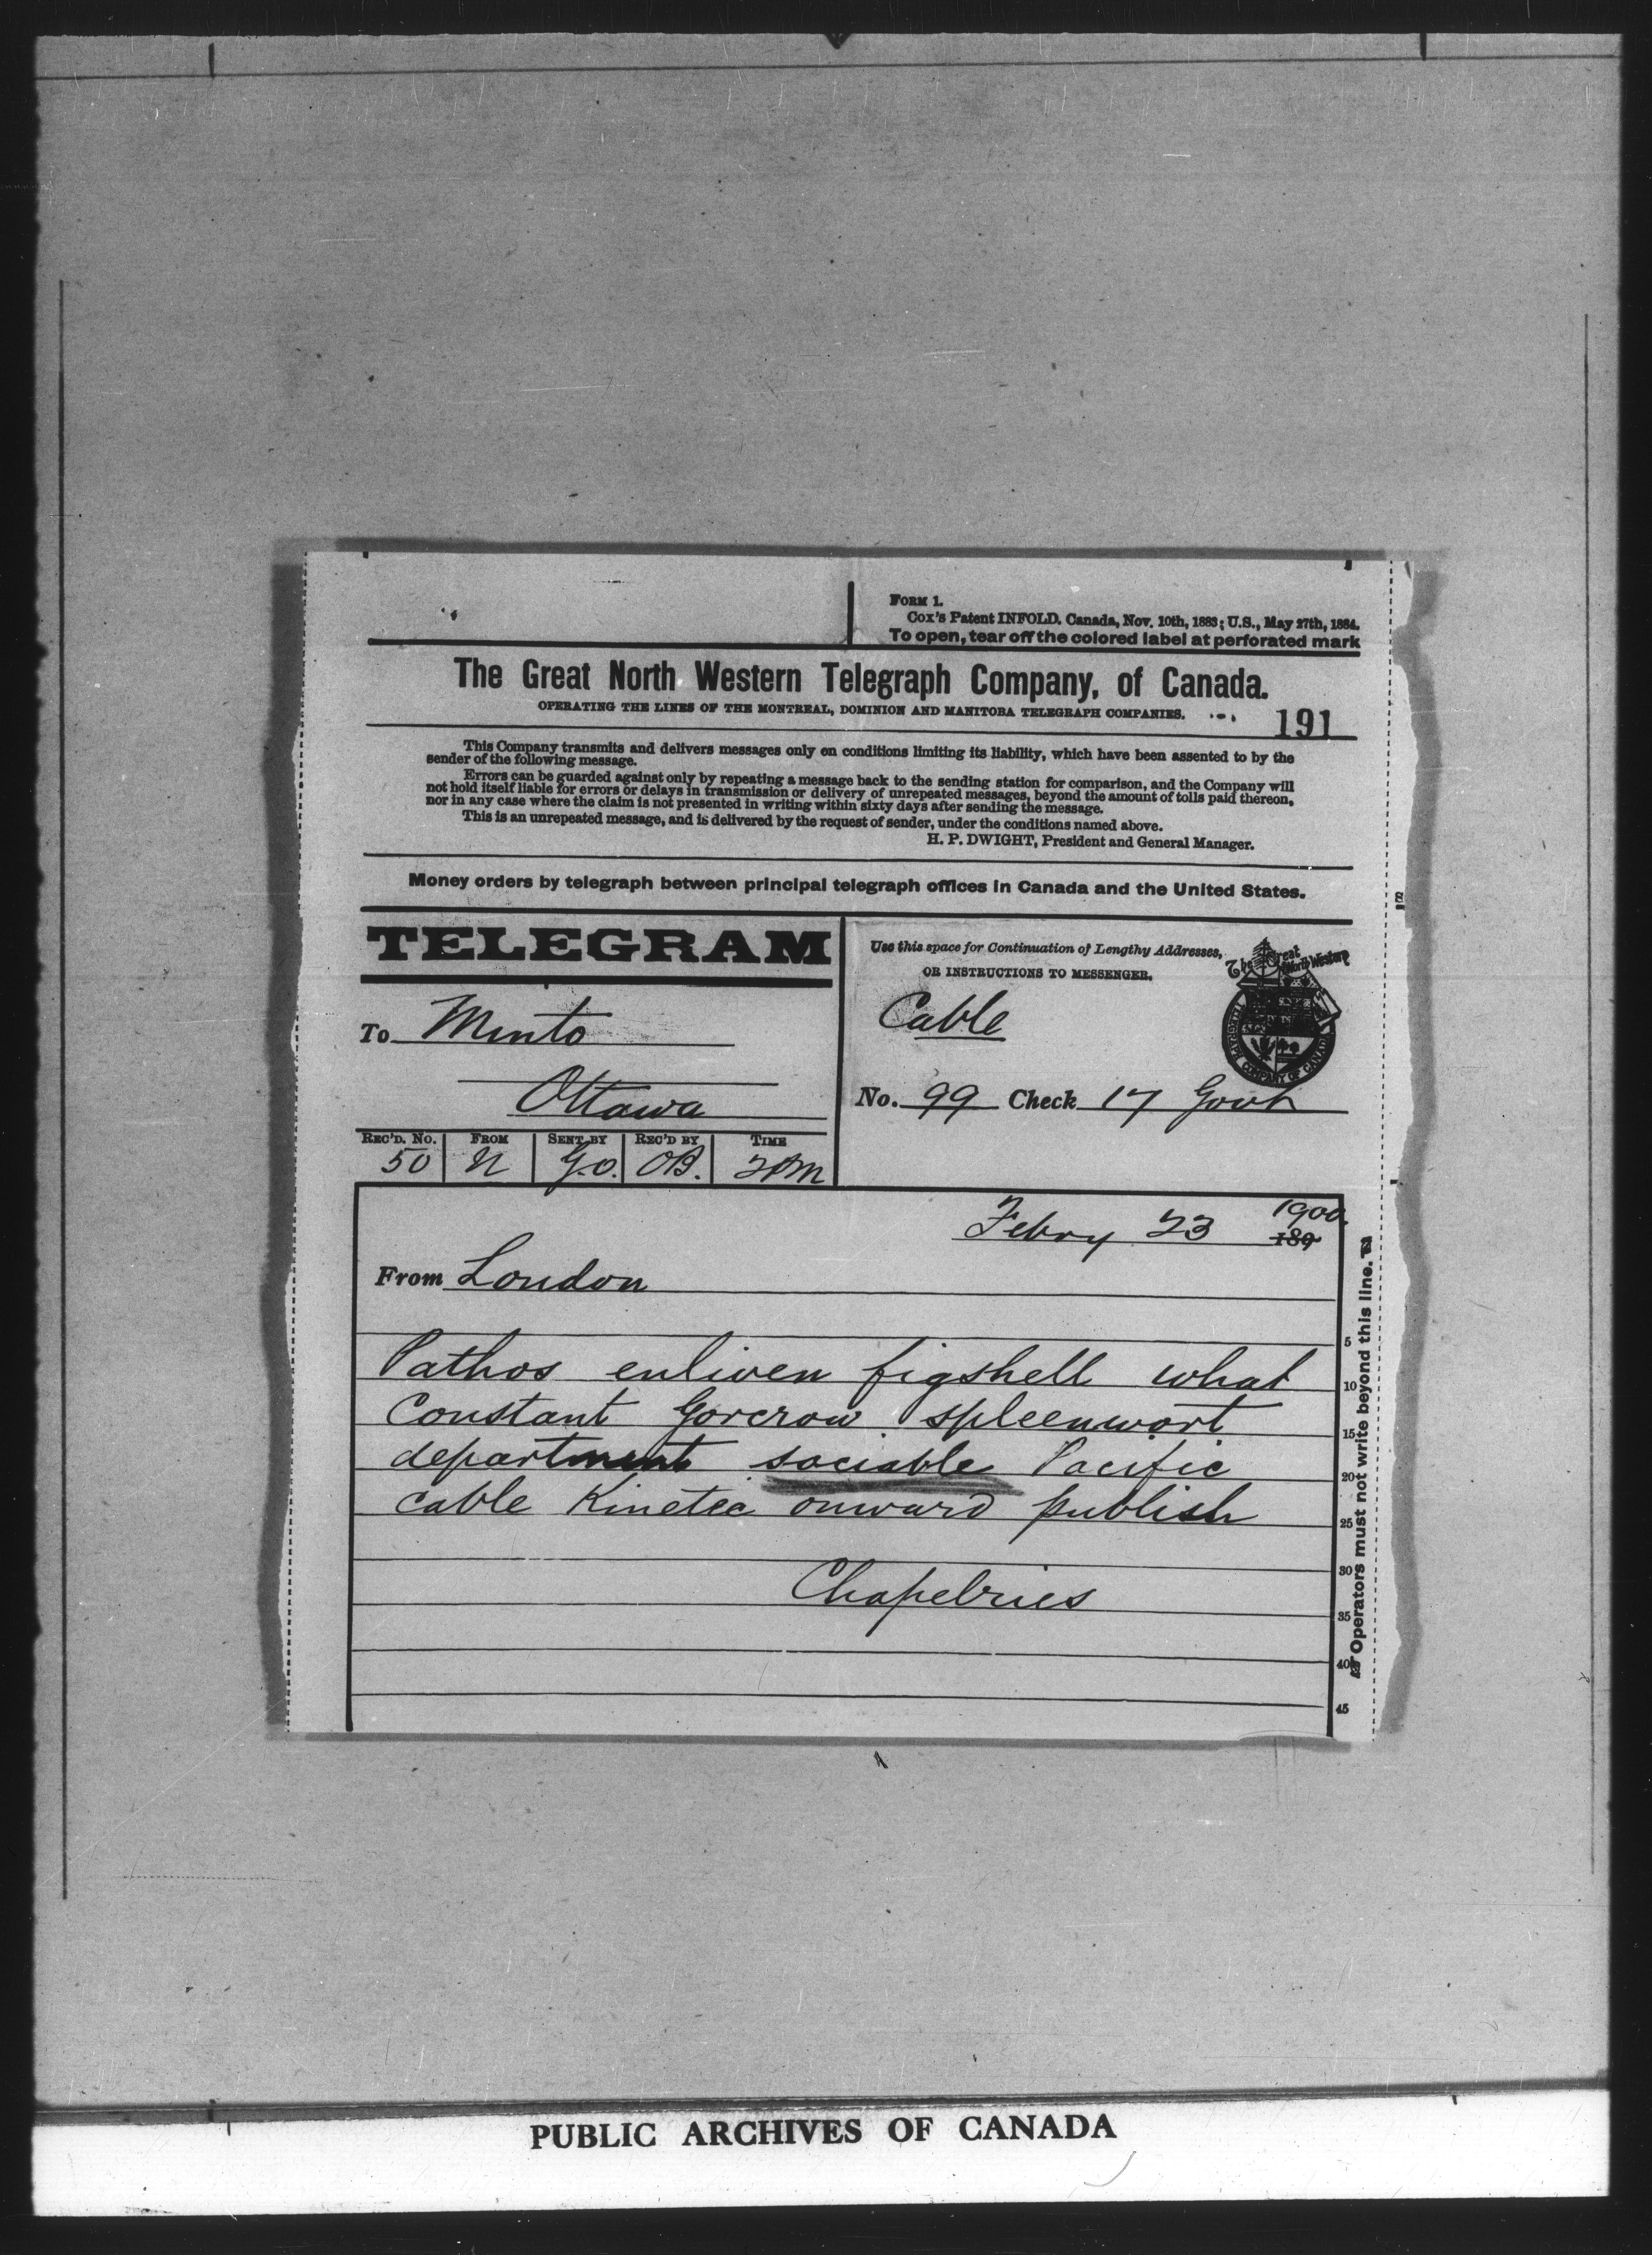 FORM 1.
Cox's Patent INFOLD. Canada, Nov. 10th, 1883; U.S., May 27th, 1884.
To open, tear off the colored label at perforated mark
The Great North Western Telegraph Company, of Canada.
OPERATING THE LINES OF THE MONTREAL, DOMINION AND MANITOBA TELEGRAPH COMPANIES.
191
This Company transmits and delivers messages only on conditions limiting its liability, which have been assented to by the
sender of the following message.
Errors can be guarded against only by repeating a message back to the sending station for comparison, and the Company will
not hold itself liable for errors or delays in transmission or delivery of unrepeated messages, beyond the amount of tolls paid thereon,
nor in any case where the claim is not presented in writing within sixty days after sending the message.
This is an unrepeated message, and is delivered by the request of sender, under the conditions named above.
H. P. DWIGHT, President and General Manager.
Money orders by telegraph between principal telegraph offices in Canada and the United States.
TELEGRAM
Use this space for Continuation of Lengthy Addresses,
OR INSTRUCTIONS TO MESSENGER.
The Great North Western
TELEGRAPH COMPANY OF CANADA
Cable
To Minto
Ottawa
No. 99 Check 17 Govt
REC'D. No. FROM SENT BY REC'D BY TIME
50 N G.O. OB. 2PM
Febry 23 1900
189
From London
Pathos enliven figshell what
Constant Gorcrow spleenwort
department sociable Pacific
cable Kinetic onward publish
Chapelries
5
10
15
20
25
30
35
40
45
Operators must not write beyond this line.
PUBLIC ARCHIVES OF CANADA